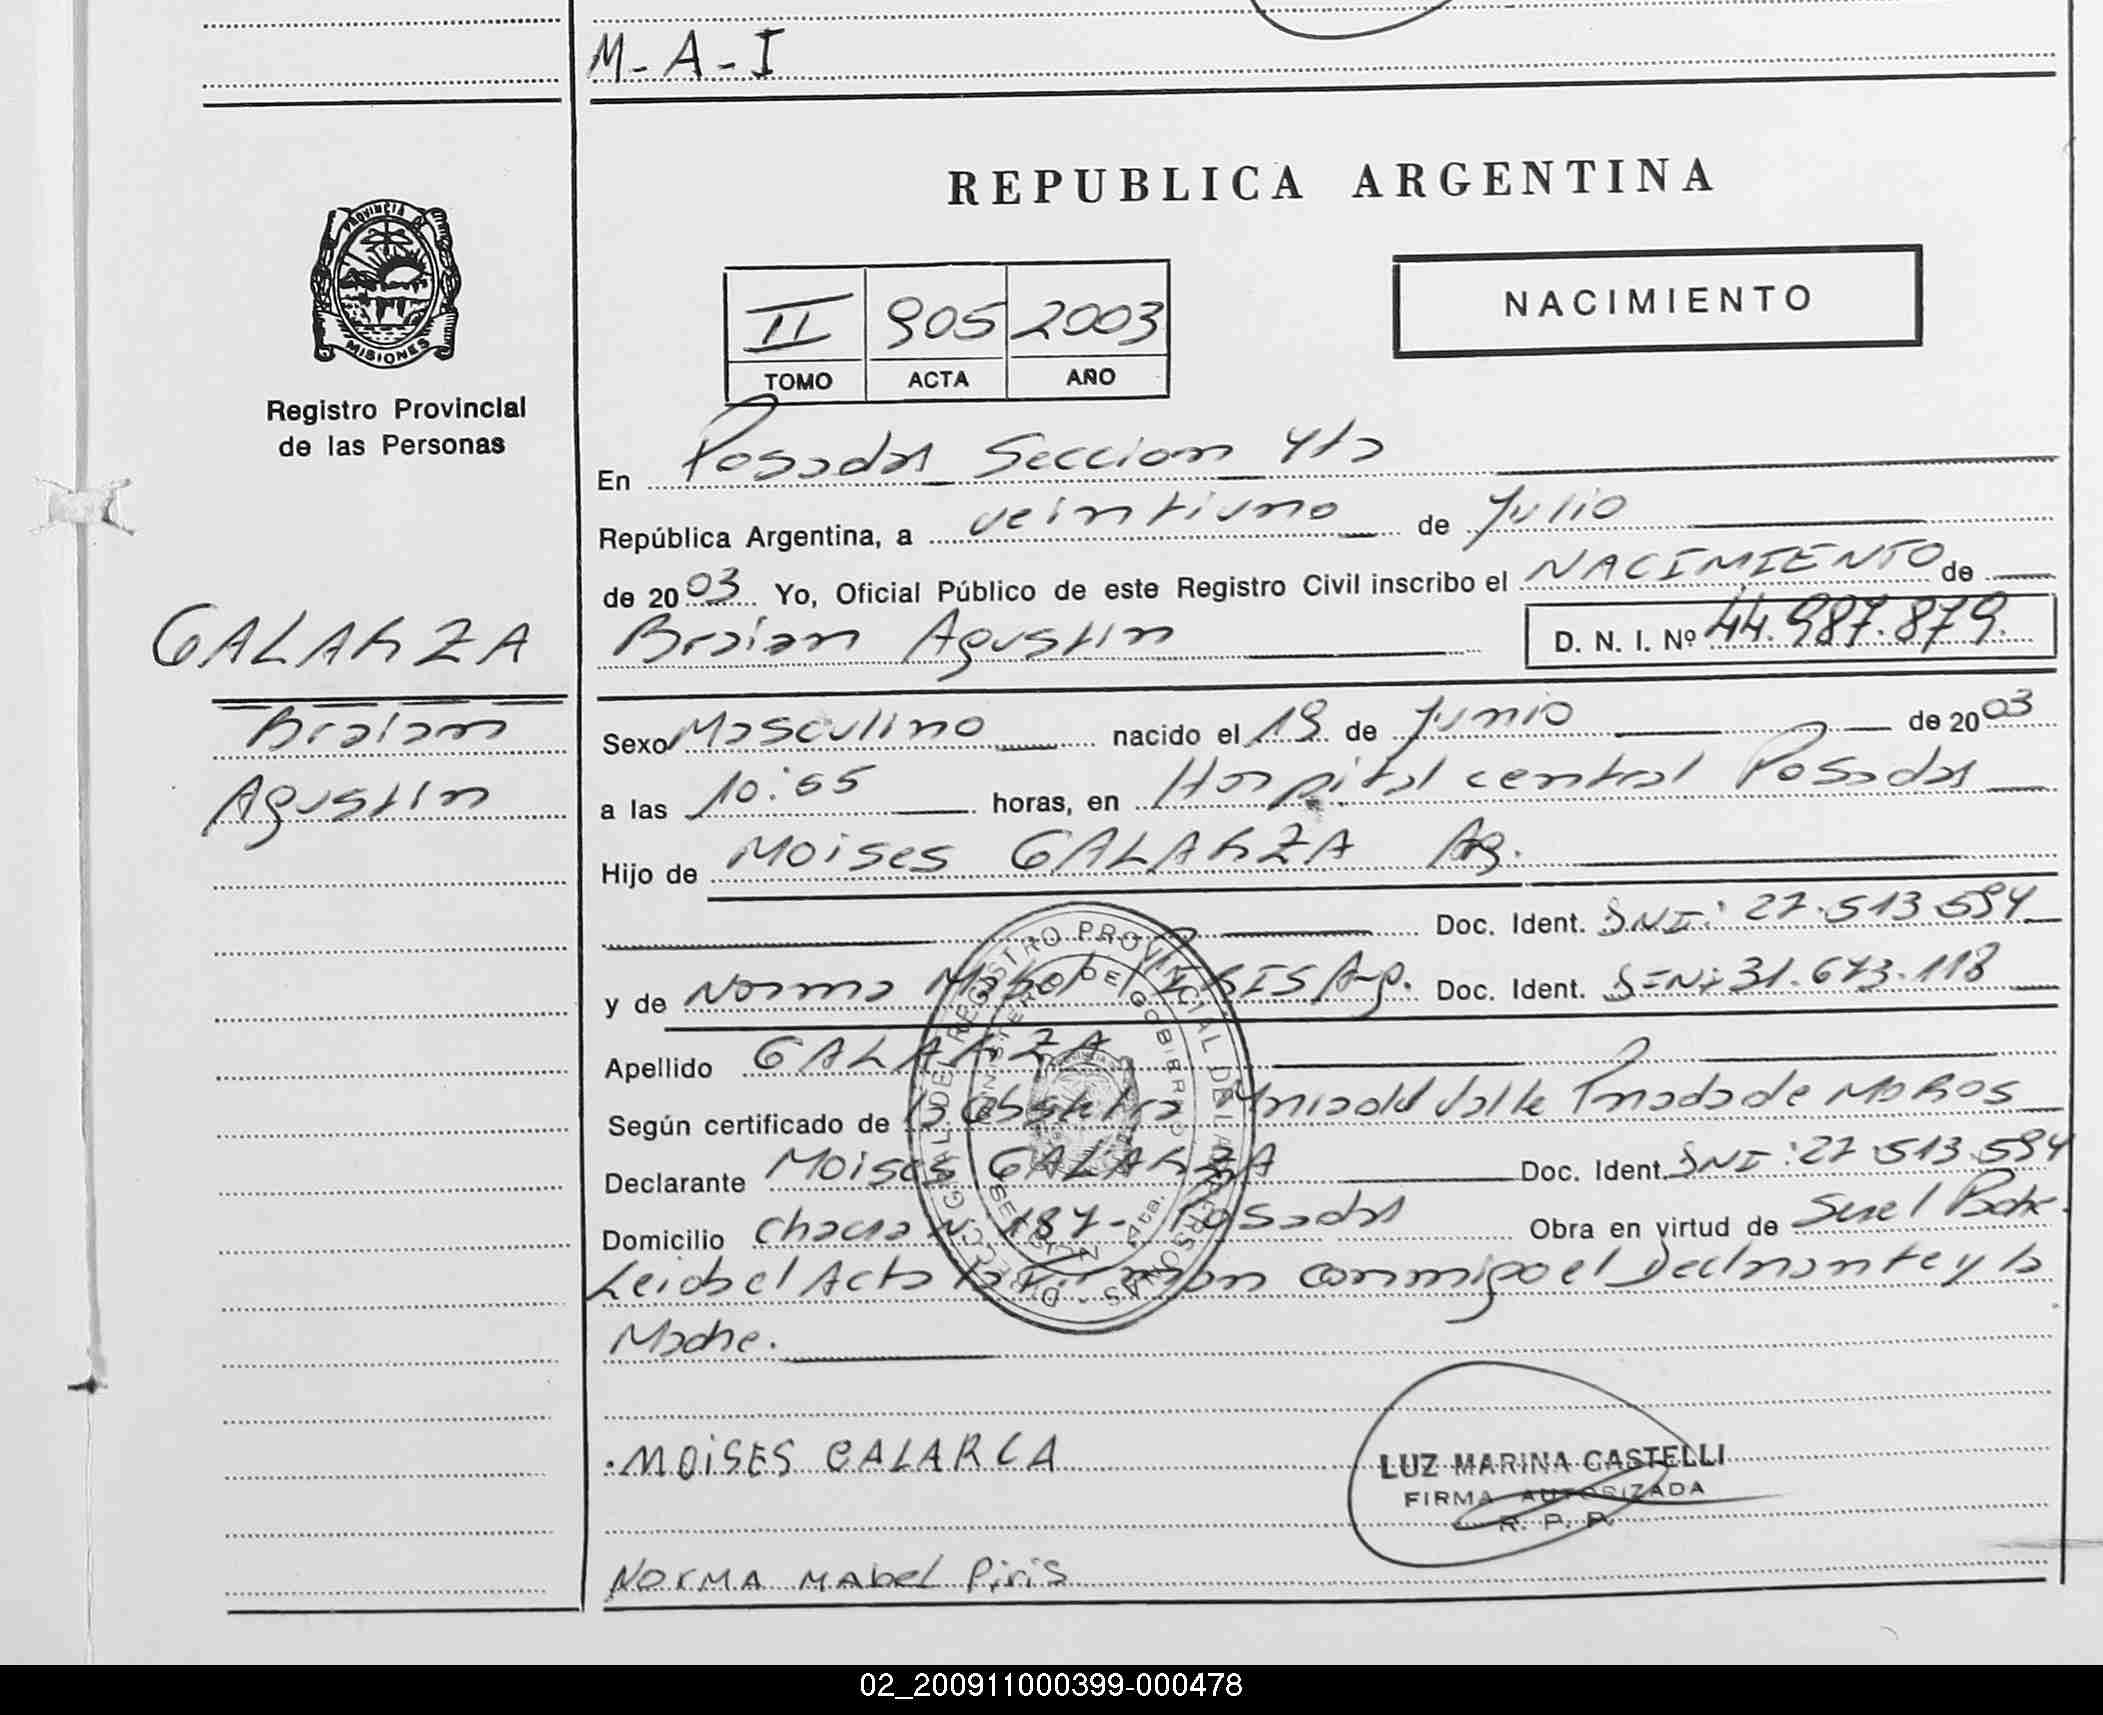 M-A-I
REPUBLICA ARGENTINA
PROVINCIA DE
MISIONES
Registro Provincial
de las Personas
II 905 2003
TOMO ACTA AÑO
NACIMIENTO
En Posadas Seccion 4ta
República Argentina, a veintiuno de Julio
de 2003 Yo, Oficial Público de este Registro Civil inscribo el NACIMIENTO de
GALARZA
Braian Agustin D. N. I. Nº 44.987.879.
Braian
Agustin
Sexo Masculino nacido el 19 de Junio de 2003
a las 10:55 horas, en Hospital central Posadas
Hijo de Moises GALARZA Ag.
Doc. Ident. DNI: 27.513.594
y de Norma Mabel PIRIS Ag. Doc. Ident. 31.673.118
Apellido GALARZA
Según certificado de la obstetra del Valle de MOROS
Declarante Moises GALARZA Doc. Ident. DNI: 27.513.594
Domicilio Chacra Nº 187- Posadas Obra en virtud de Ser el Padre.
Leida el Acta la firman conmigo el Declarante y la
Madre.
DIRECC. GRAL. DEL REGISTRO PROVINCIAL DE LAS PERSONAS
MINISTERIO DE GOBIERNO
SECCION 4ta.
.MOiSES CALARCA
LUZ MARINA CASTELLI
FIRMA AUTORIZADA
R. P. P.
NORMA MAbel Piris
02_200911000399-000478